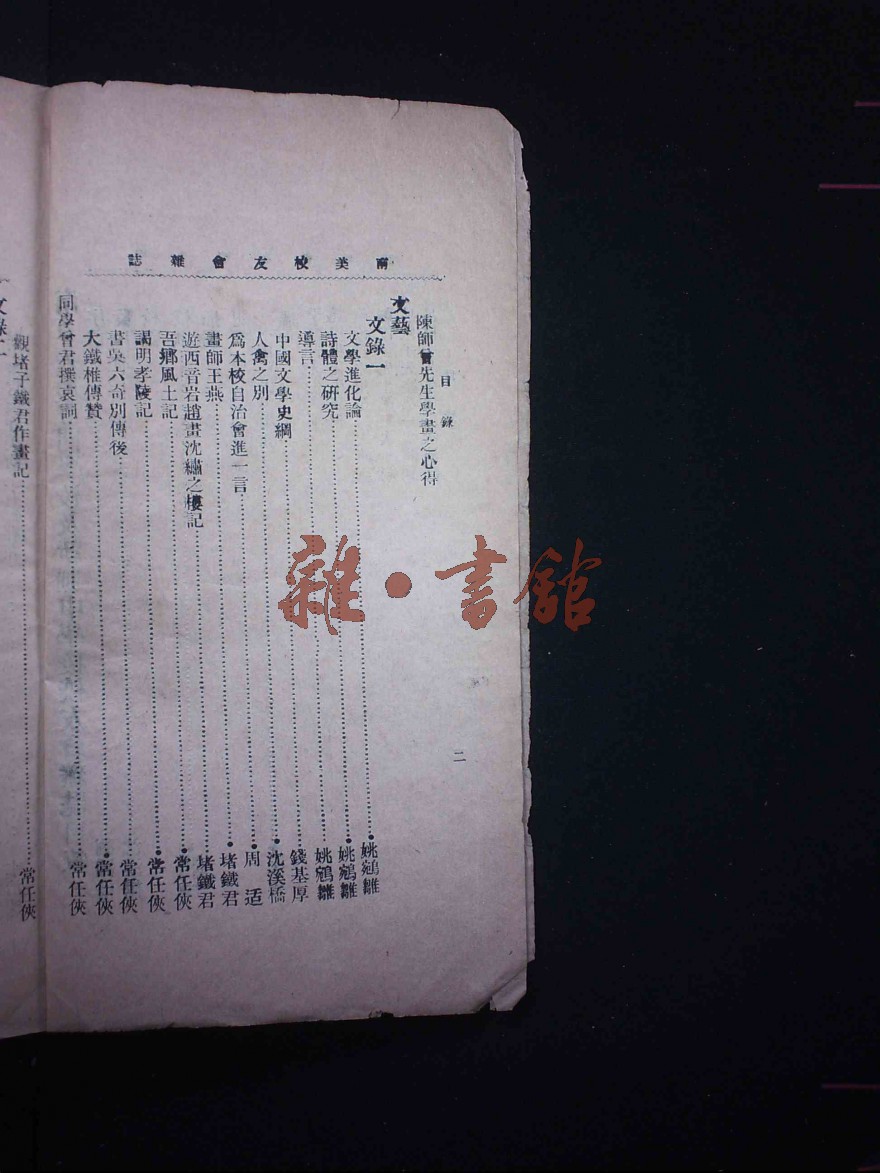 南美校友會雜誌
目錄
二
陳師曾先生學畫之心得
文藝
文錄一
文學進化論 姚鵷雛
詩體之研究 姚鵷雛
導言 姚鵷雛
中國文學史綱 錢基厚
人禽之別 沈溪橋
爲本校自治會進一言 周适
畫師王燕 堵鐵君
遊西音岩趙畫沈繡之樓記 堵鐵君
吾鄉風土記 常任俠
謁明孝陵記 常任俠
書吳六奇別傳後 常任俠
大鐵椎傳贊 常任俠
同學曾君撰哀詞 常任俠
觀堵子鐵君作畫記 常任俠
文錄二
雜·書館